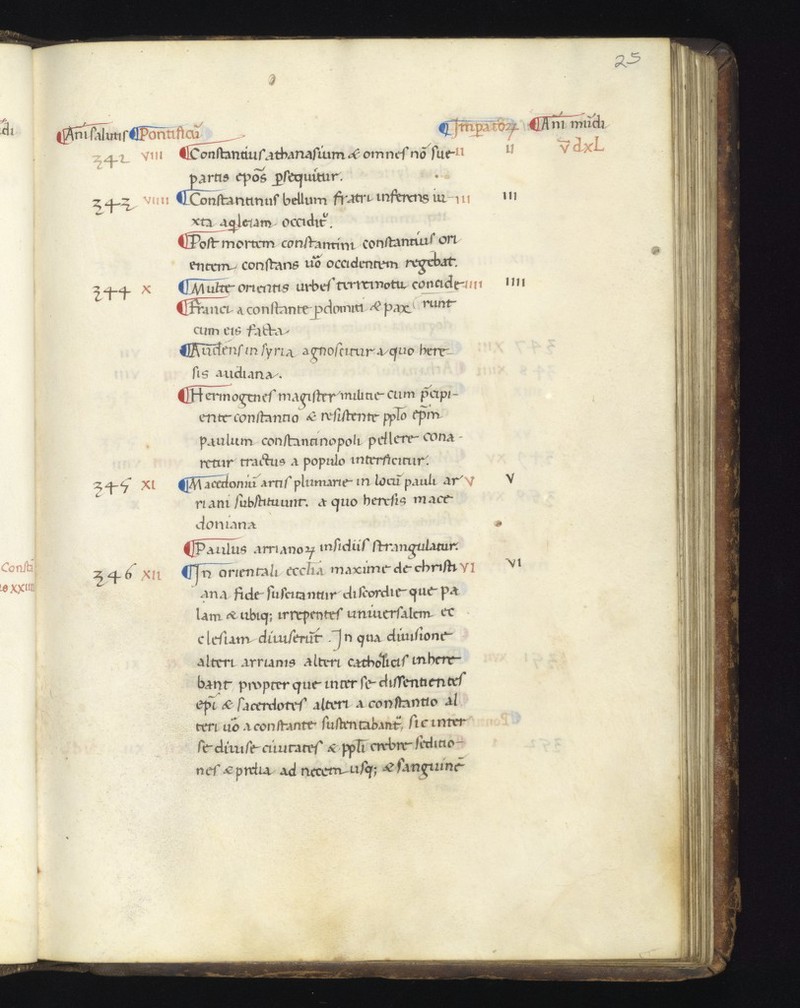 25
Añi salutis Pontificū Imperatoꝝ Añi mūdi
342 VIII Constantius athanasium & omnes nō sue II II v̄dxL
partis ep̄os ꝑsequitur.
343 VIIII Constantinus bellum fratri inferens iu III III
xta aq̄leiam occiditᷣ.
Post mortem constantini constantius ori
entem constans uͦo occidentem regebat.
344 X Multe orientis urbes terremotu concide IIII IIII
Franci a constante ꝑdomiti & pax runt
cum eis facta.
Audens in syria agnoscitur a quo here
sis audiana.
Hermogenes magister militie cum p̄cipi-
ente constantio & resistente pp̄lo ep̄m
paulum constantinopoli pellere cona-
retur tractus a populo interficitur.
345 XI Macedoniū artis plumarie in locū pauli ar V V
riani substituunt. a quo heresis mace
doniana
Paulus arrianoꝝ insidiis strangulatur.
346 XII In orientali eccl̄ia maxime de christi VI VI
ana fide suscitantur discordie que pa
lam & ubiq; irrepentes uniuersalem ec
clesiam diuiserūt. In qua diuisione
alteri arrianis alteri catholicis inhere
bant propter que inter se dissentientes
ep̄i & sacerdotes alteri a constantio al
teri uͦo a constante sustentabantᷣ, sic inter
se diuise ciuitates & pp̄li crebre seditio-
nes & prelia ad necem usq; & sanguinē
Constā